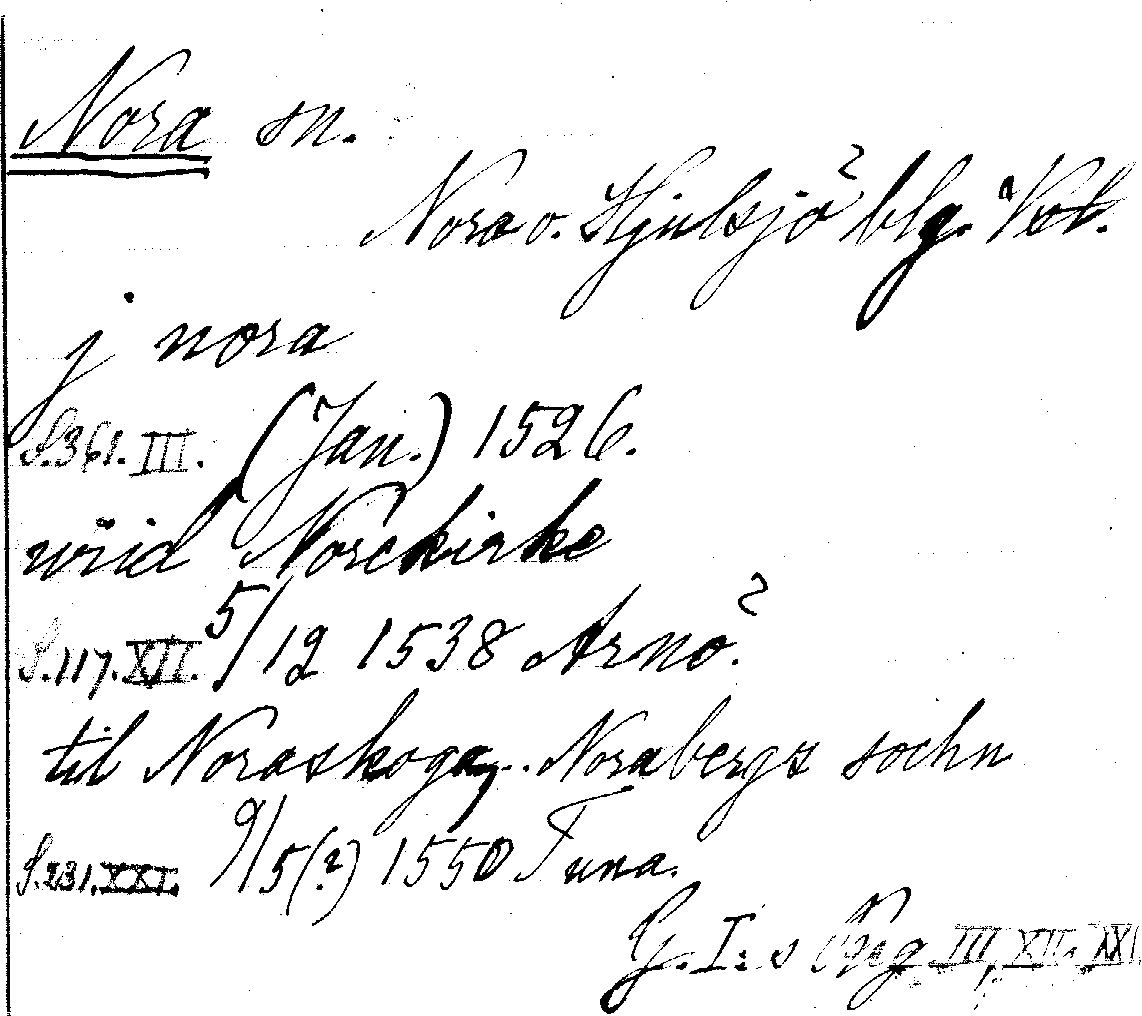 Nora sn.
Nora o. Hjulsjö blg. Vstl.
j nora
S.361.III. (Jan.) 1526.
wiid Norekirke
S.117.XII. 5/12 1538 Arnö.
til Noraskoga, Norabergs sochn
S.231.XXI. 9/5(?) 1550 Tuna.
G.I:s Reg III, XII. XXI.